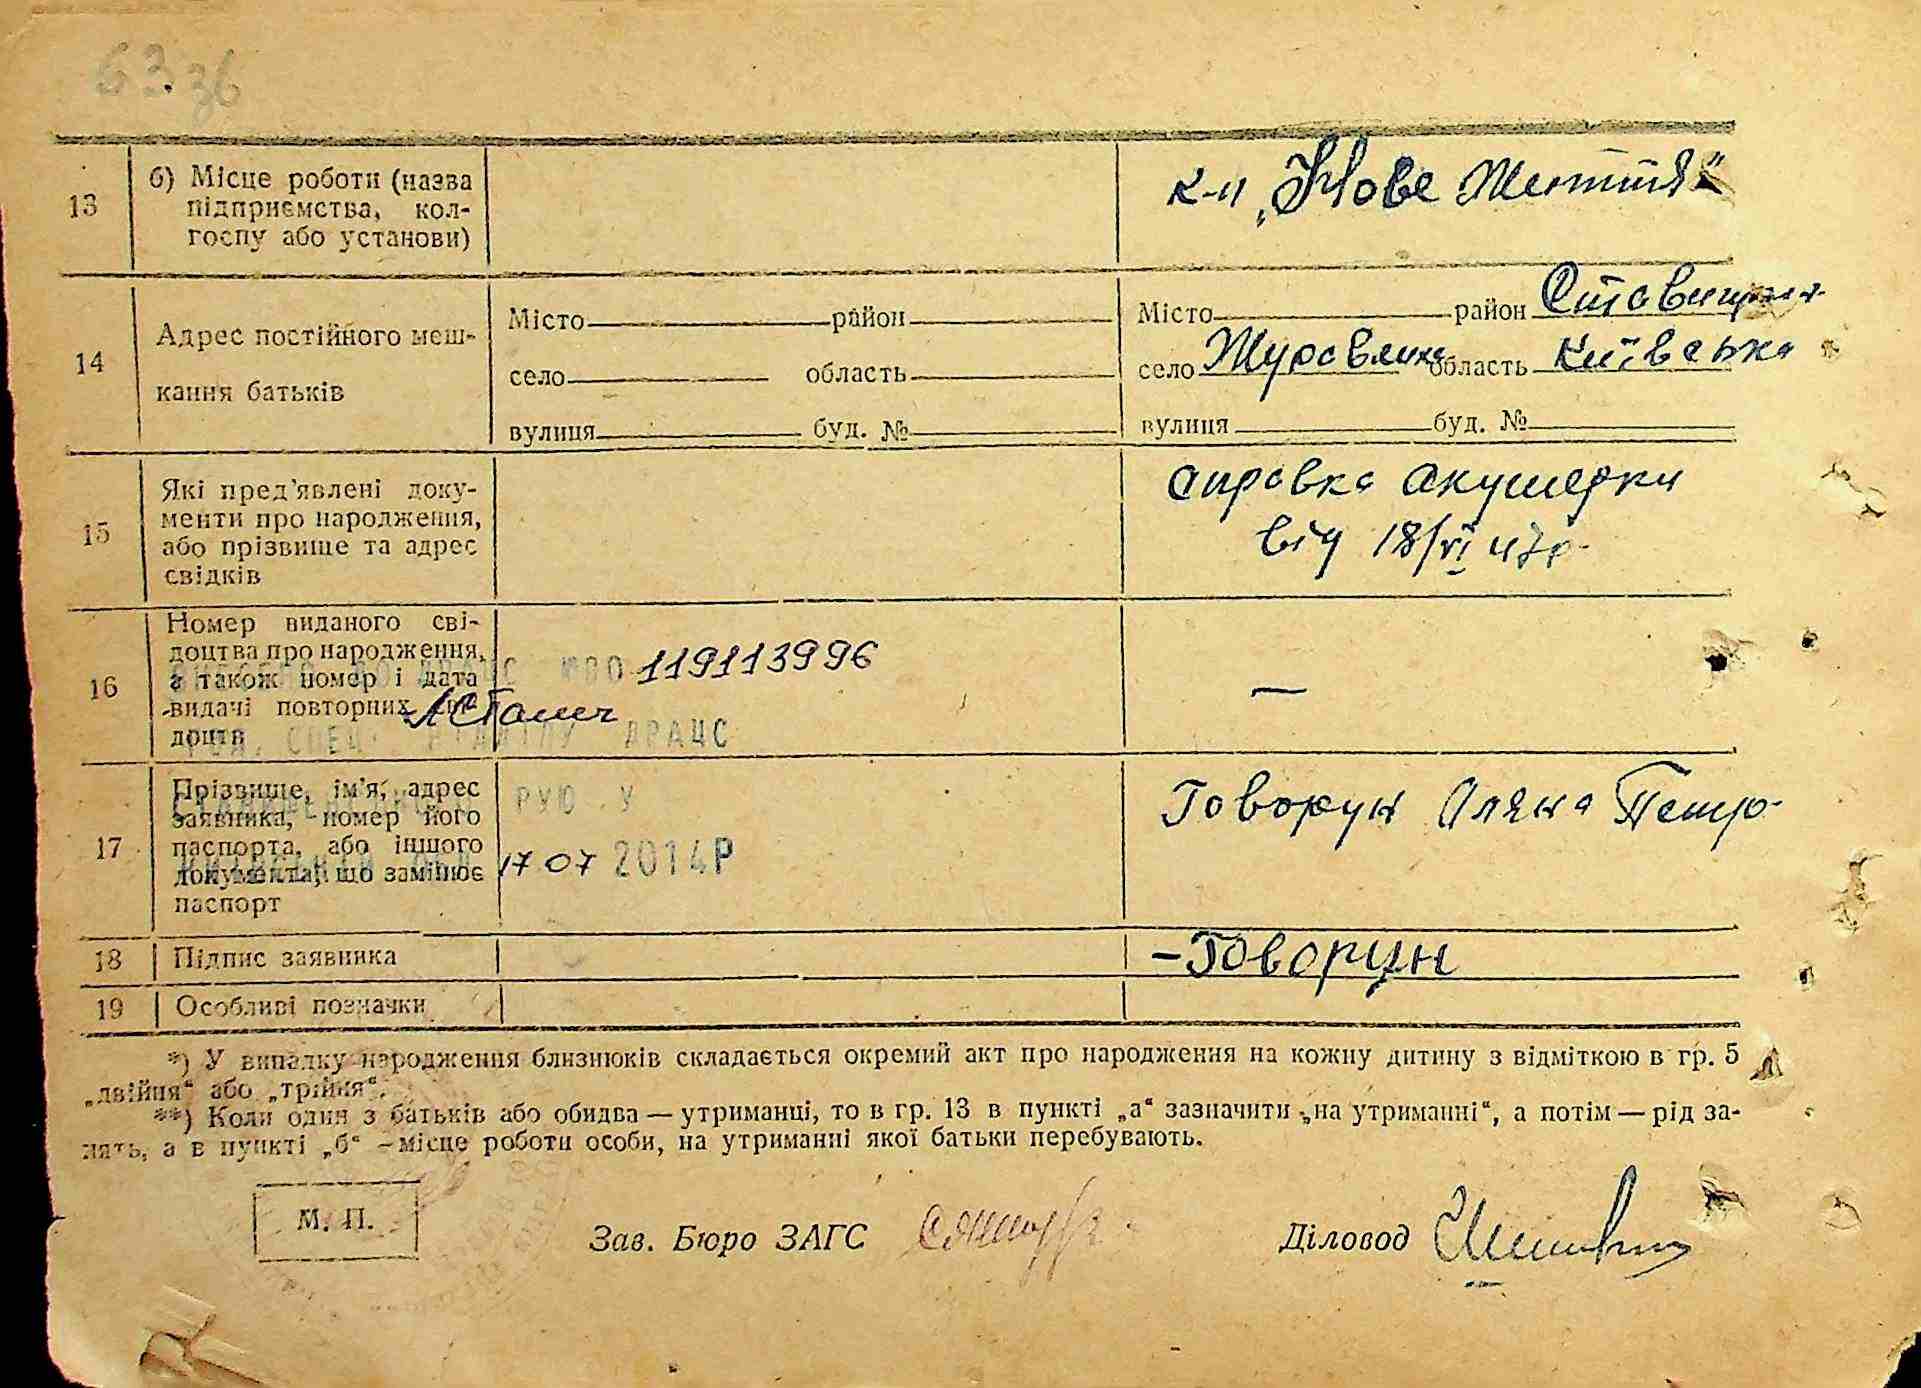 63 зв
13
б) Місце роботи (назва
підприємства, кол-
госпу або установи)
к-п „Нове Життя“
14
Адрес постійного меш-
кання батьків
Місто район
село область
вулиця буд. №
Місто район
село Журавлиха область Київська
вулиця буд. №
15
Які пред'явлені доку-
менти про народження,
або прізвище та адрес
свідків
справка акушерки
від 18/VI 47р.
16
Номер виданого сві-
доцтва про народження,
а також номер і дата
видачі повторних
доцтв
ДРАЦС 119113996
ВІДДІЛУ ДРАЦС
—
17
Прізвище, ім'я, адрес
заявника, номер його
паспорта, або іншого
документа, що замінює
паспорт
РУЮ У
17 07 2014Р
Говорун Петро
18
Підпис заявника
-Говорун
19
Особливі позначки
*) У випадку народження близнюків складається окремий акт про народження на кожну дитину з відміткою в гр. 5
„двійня“ або „трійня“.
**) Коли один з батьків або обидва — утриманці, то в гр. 13 в пункті „а“ зазначити „на утриманні“, а потім — рід за-
нять, а в пункті „б“ – місце роботи особи, на утриманні якої батьки перебувають.
М. П.
Зав. Бюро ЗАГС
Діловод